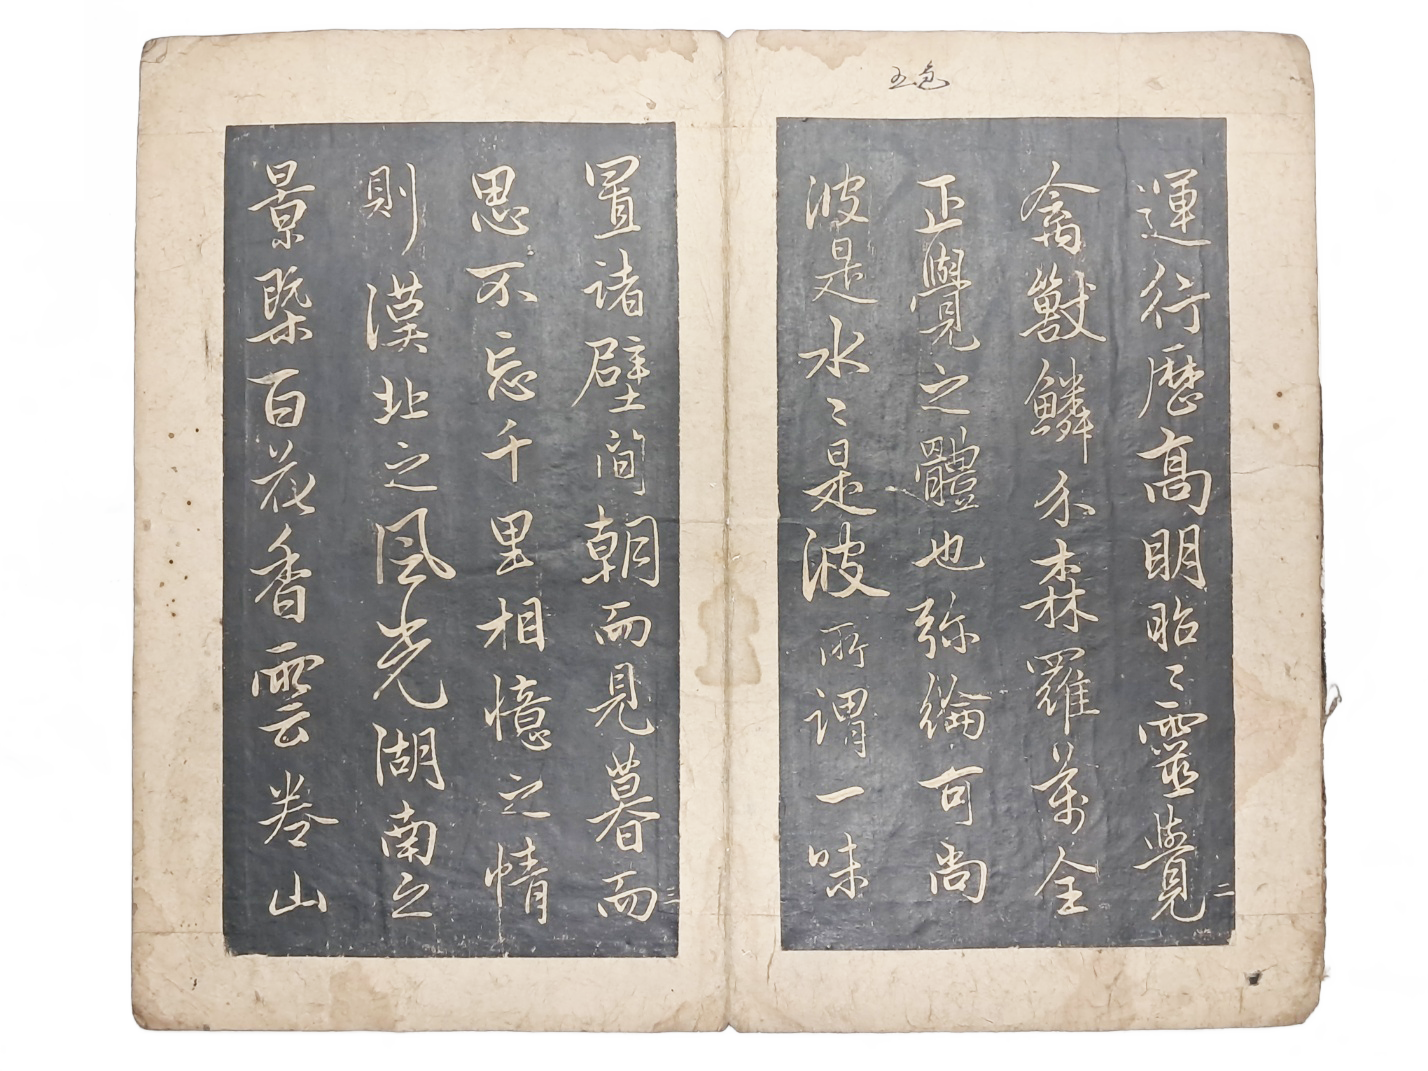 五色
運行歴高明昭〻靈覺
二
禽獸鱗介森羅萬全
正覺之體也弥綸可尚
波是水〻是波所謂一味
置諸壁間朝而見暮而
三
思不忘千里相憶之情
則漠北之風光湖南之
景槩百花香雲卷山